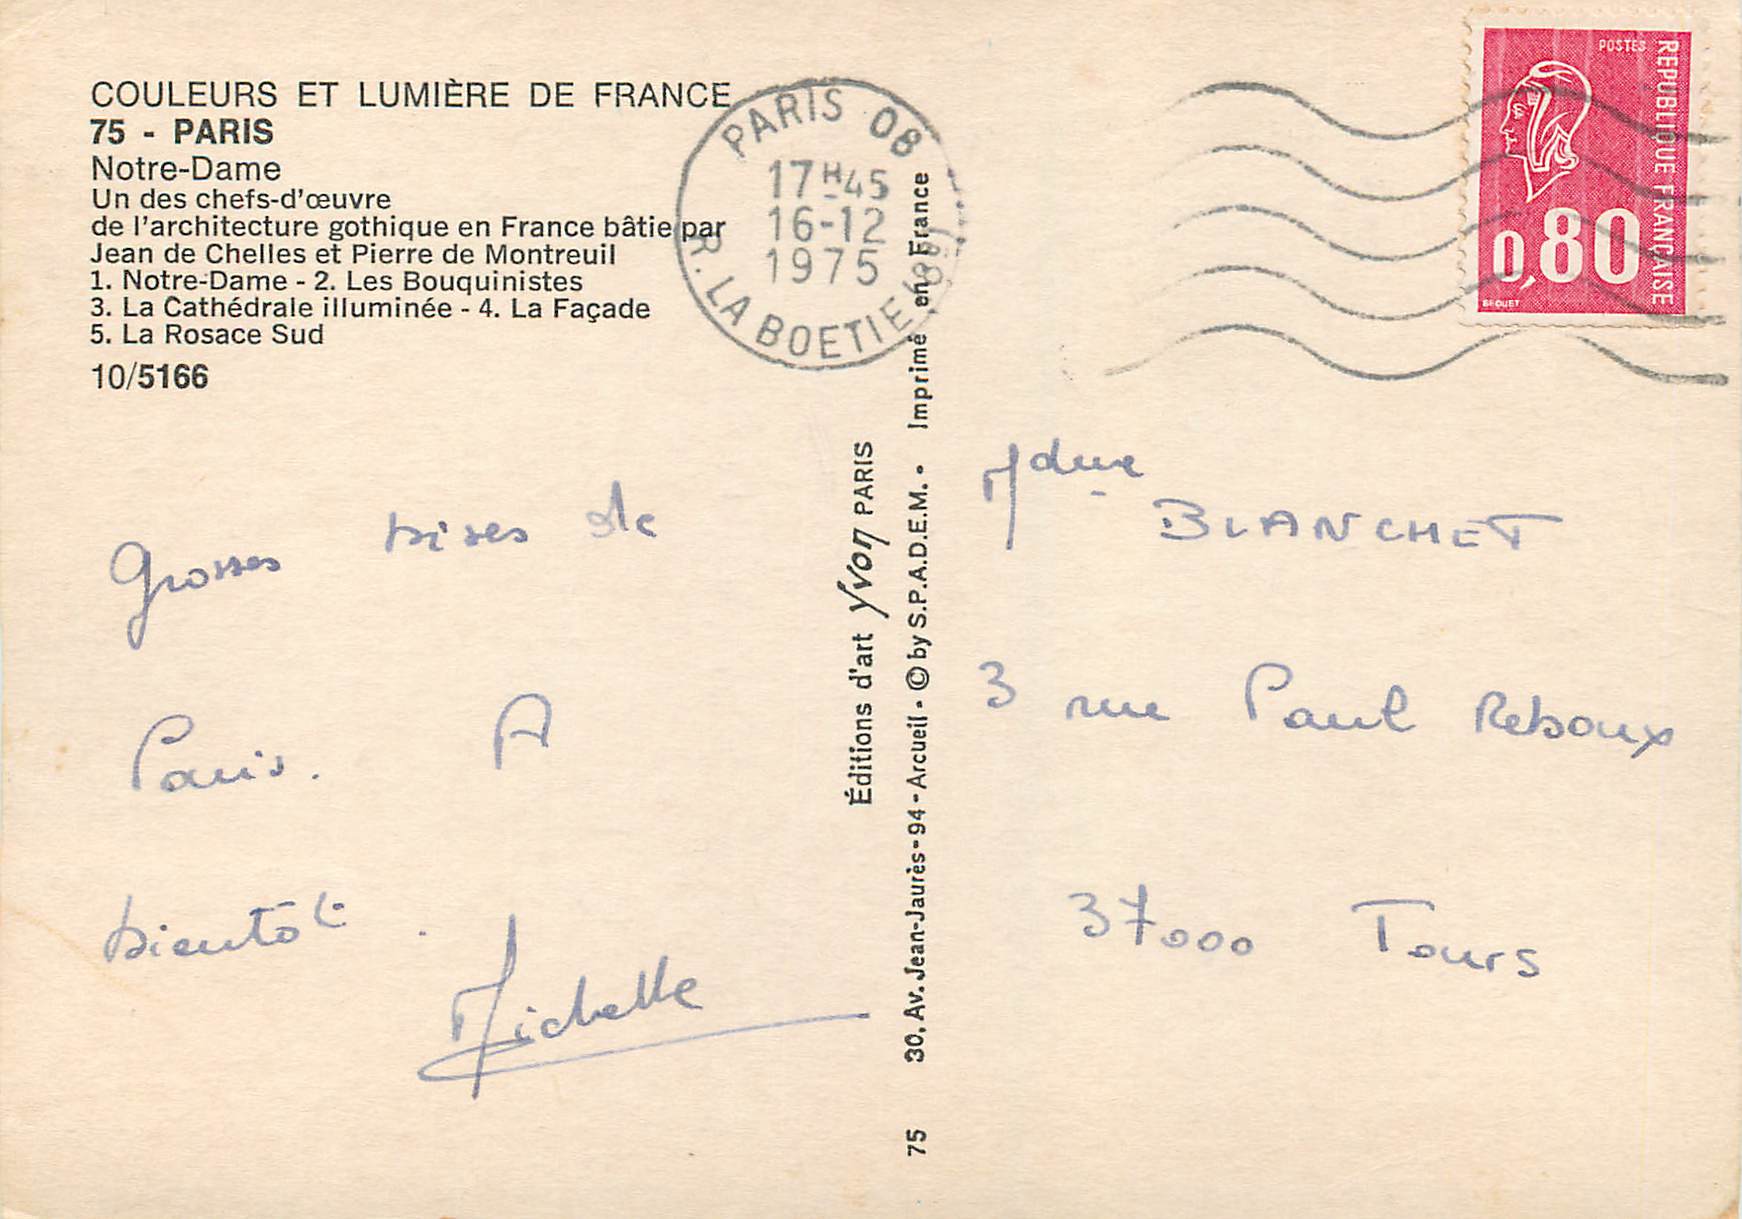 COULEURS ET LUMIÈRE DE FRANCE
75 - PARIS
Notre-Dame
Un des chefs-d'œuvre
de l'architecture gothique en France bâtie par
Jean de Chelles et Pierre de Montreuil
1. Notre-Dame - 2. Les Bouquinistes
3. La Cathédrale illuminée - 4. La Façade
5. La Rosace Sud
10/5166
PARIS 08
17H45
16-12
1975
R. LA BOETIE (8e)
POSTES
REPUBLIQUE FRANÇAISE
0,80
BEQUET
Grosses bises de
Paris. A
bientôt.
Michelle
Éditions d'art Yvon PARIS
75 30, Av. Jean-Jaurès-94-Arcueil - © by S.P.A.D.E.M. - Imprimé en France
Mdme
BLANCHET
3 rue Paul Reboux
37000 Tours